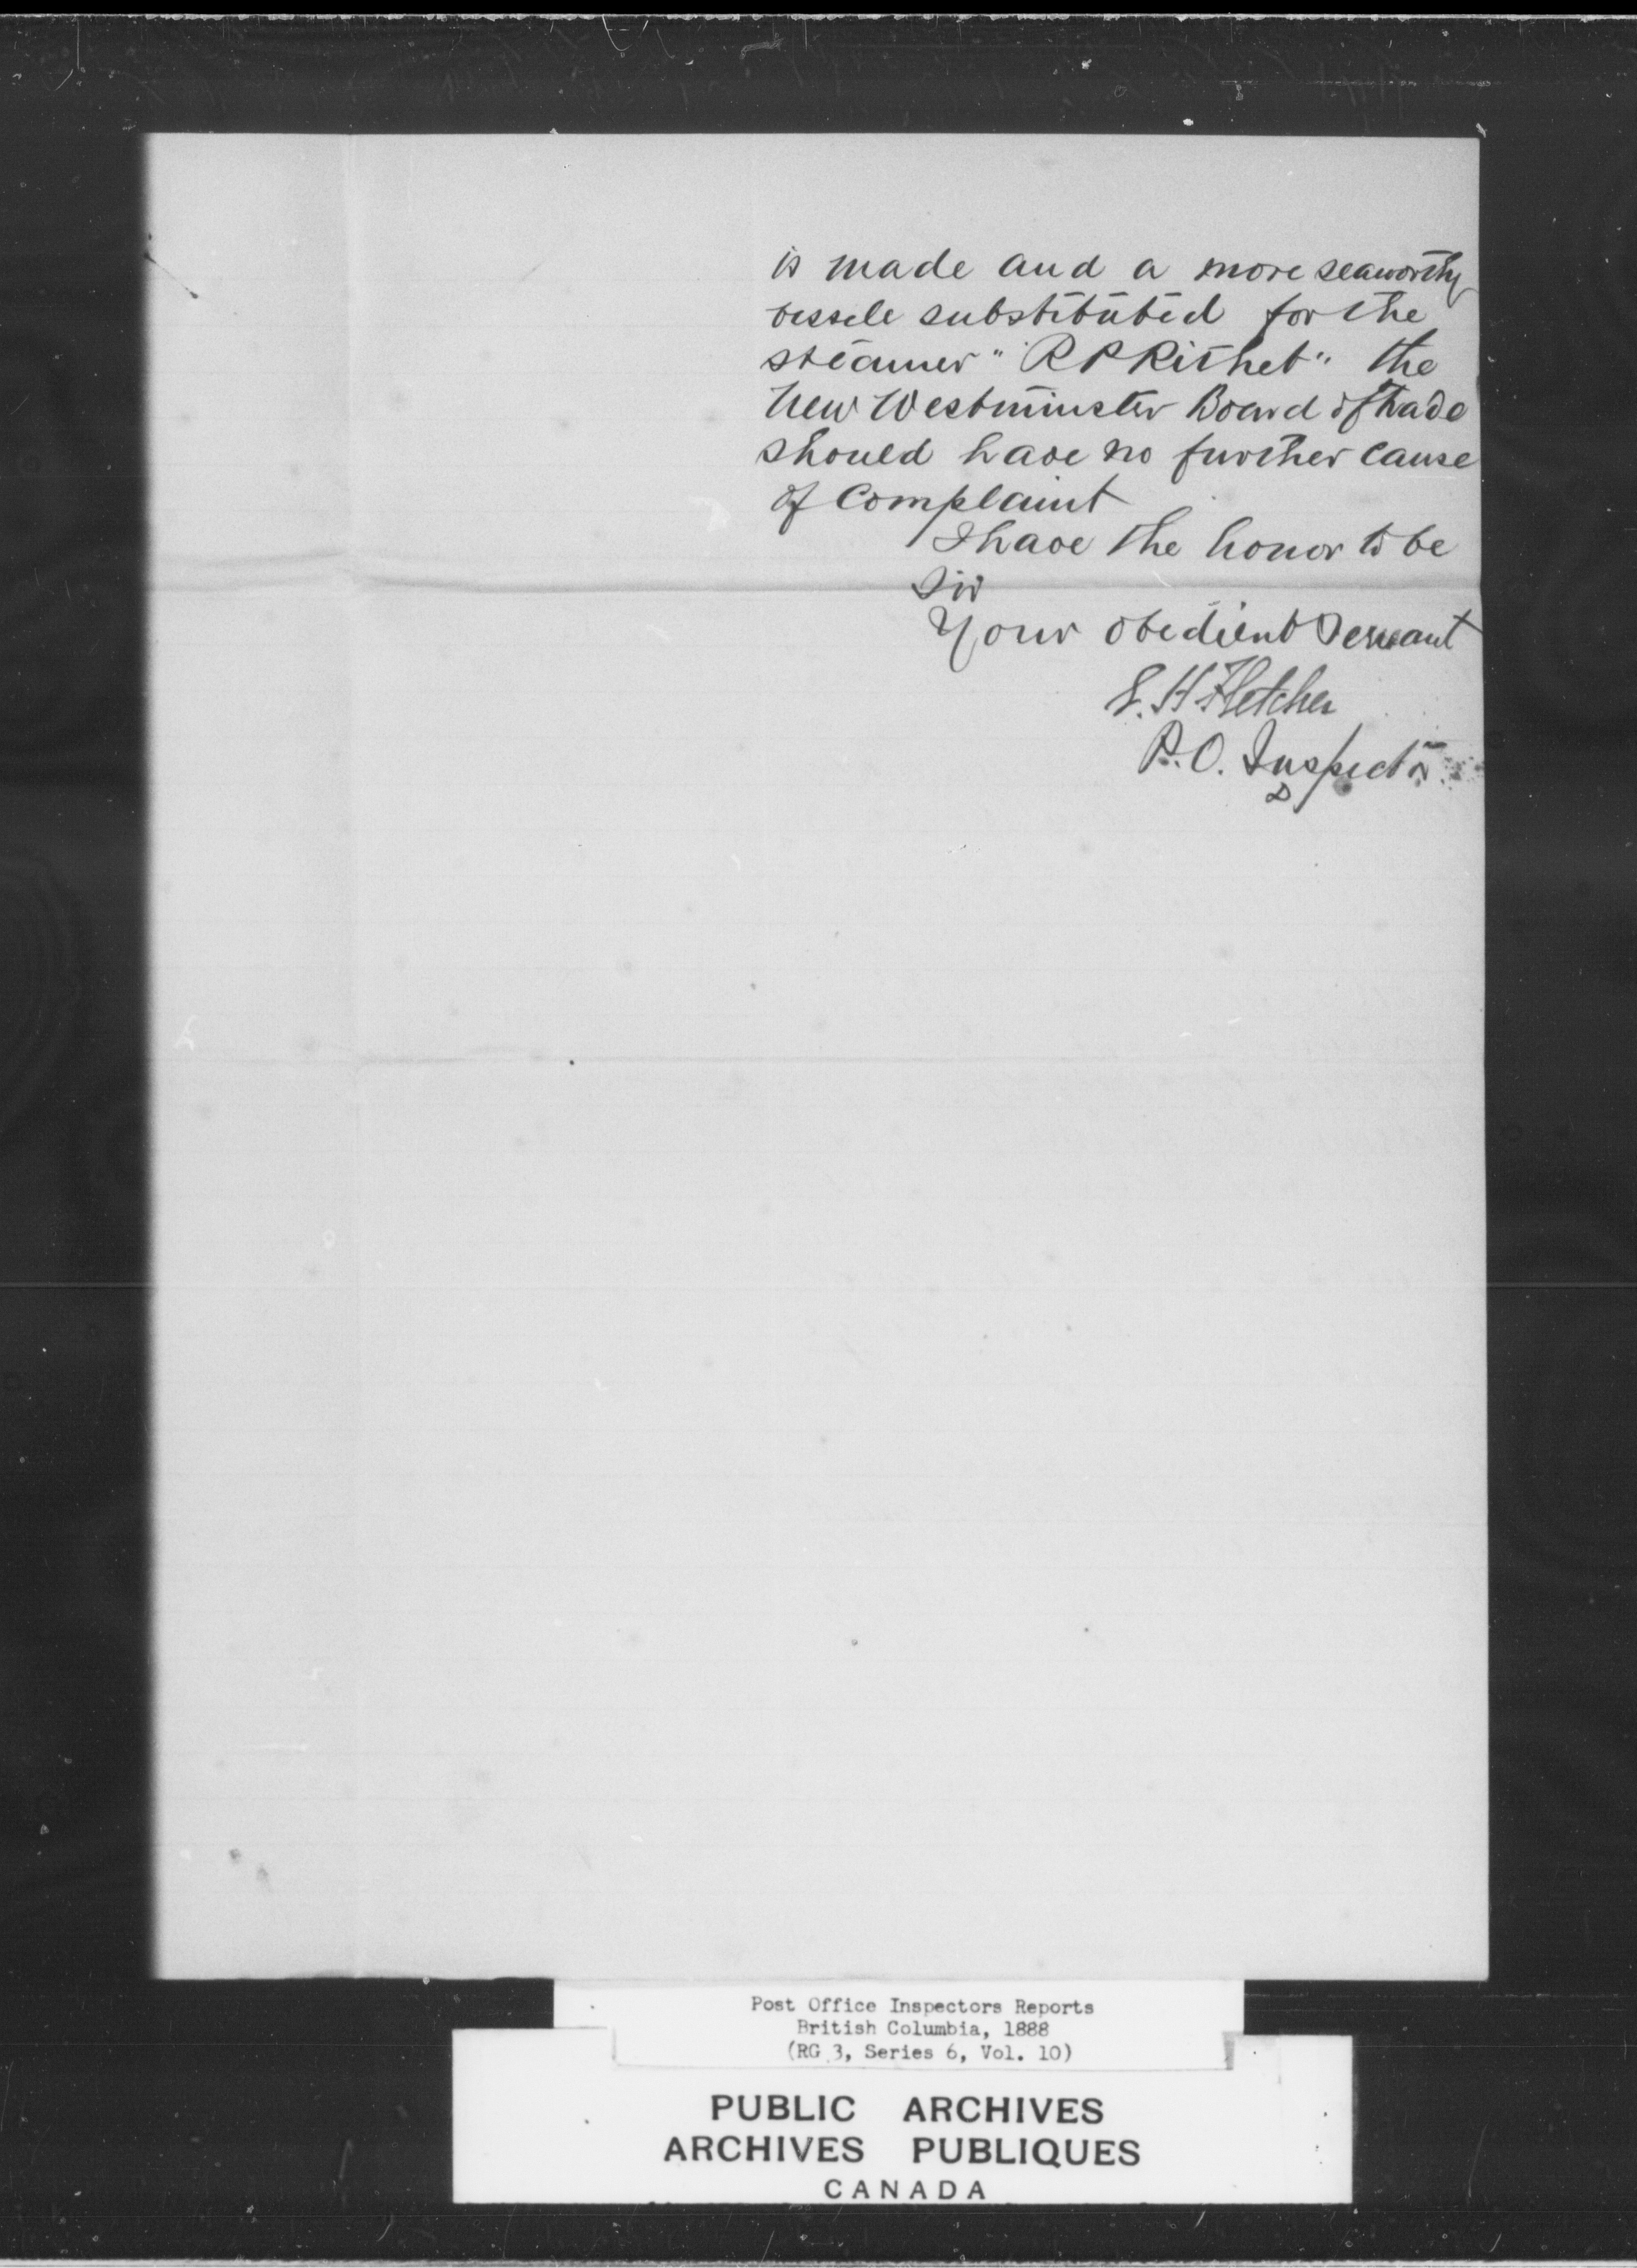 is made and a more seaworthy
vessele substituted for the
steamer "R P Rithet" the
New Westminster Board of trade
should have no further cause
of complaint
I have the honor to be
Sir
Your obedient Servant
E. H. Fletcher
P.O. Inspector
Post Office Inspectors Reports
British Columbia, 1888
(RG 3, Series 6, Vol. 10)
PUBLIC ARCHIVES
ARCHIVES PUBLIQUES
CANADA